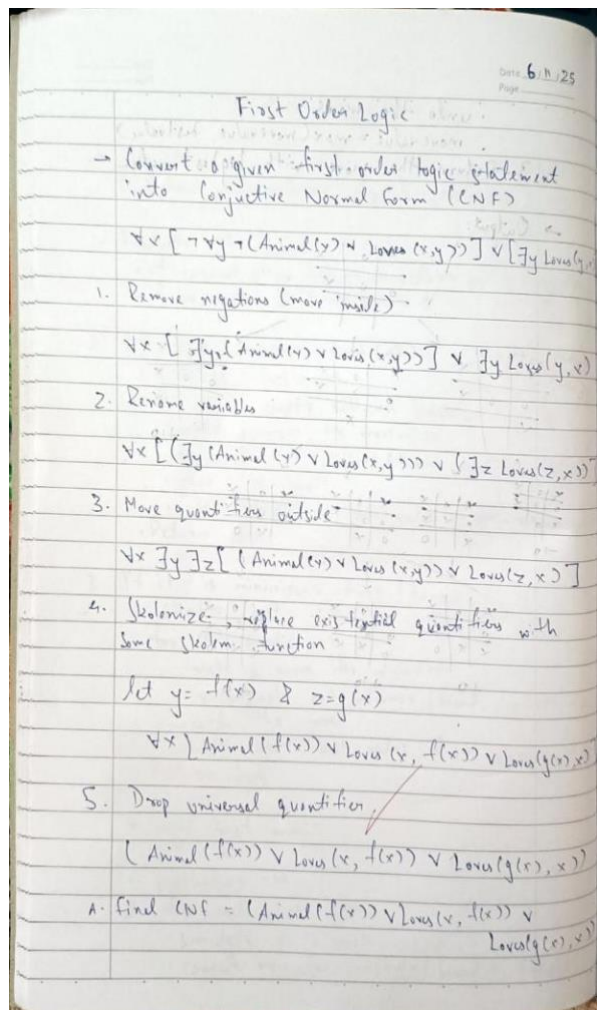 Date 6/11/25
Page
First Order Logic
→ Convert a given first order logic statement
into Conjuctive Normal Form (CNF)
∀x [ ¬∀y ¬(Animal(y) ∨ Loves (x,y))] ∨ [∃y Loves(y,x)
1. Remove negations (move inside)
∀x [ ∃y (Animal(y) ∨ Loves(x,y))] ∨ ∃y Loves(y,x)
2. Rename variables
∀x [(∃y (Animal(y) ∨ Loves(x,y))) ∨ ( ∃z Loves(z,x))]
3. Move quantifiers outside
∀x ∃y ∃z [ (Animal(y) ∨ Loves(x,y)) ∨ Loves(z,x) ]
4. Skolomize, replace existential quantifiers with
Some Skolem function
let y = f(x) & z = g(x)
∀x [ Animal(f(x)) ∨ Loves (x, f(x)) ∨ Loves(g(x),x)]
5. Drop universal quantifier.
( Animal (f(x)) ∨ Loves(x, f(x)) ∨ Loves(g(x), x))
A. Final CNF = (Animal(f(x)) ∨ Loves(x, f(x)) ∨
Loves(g(x),x))